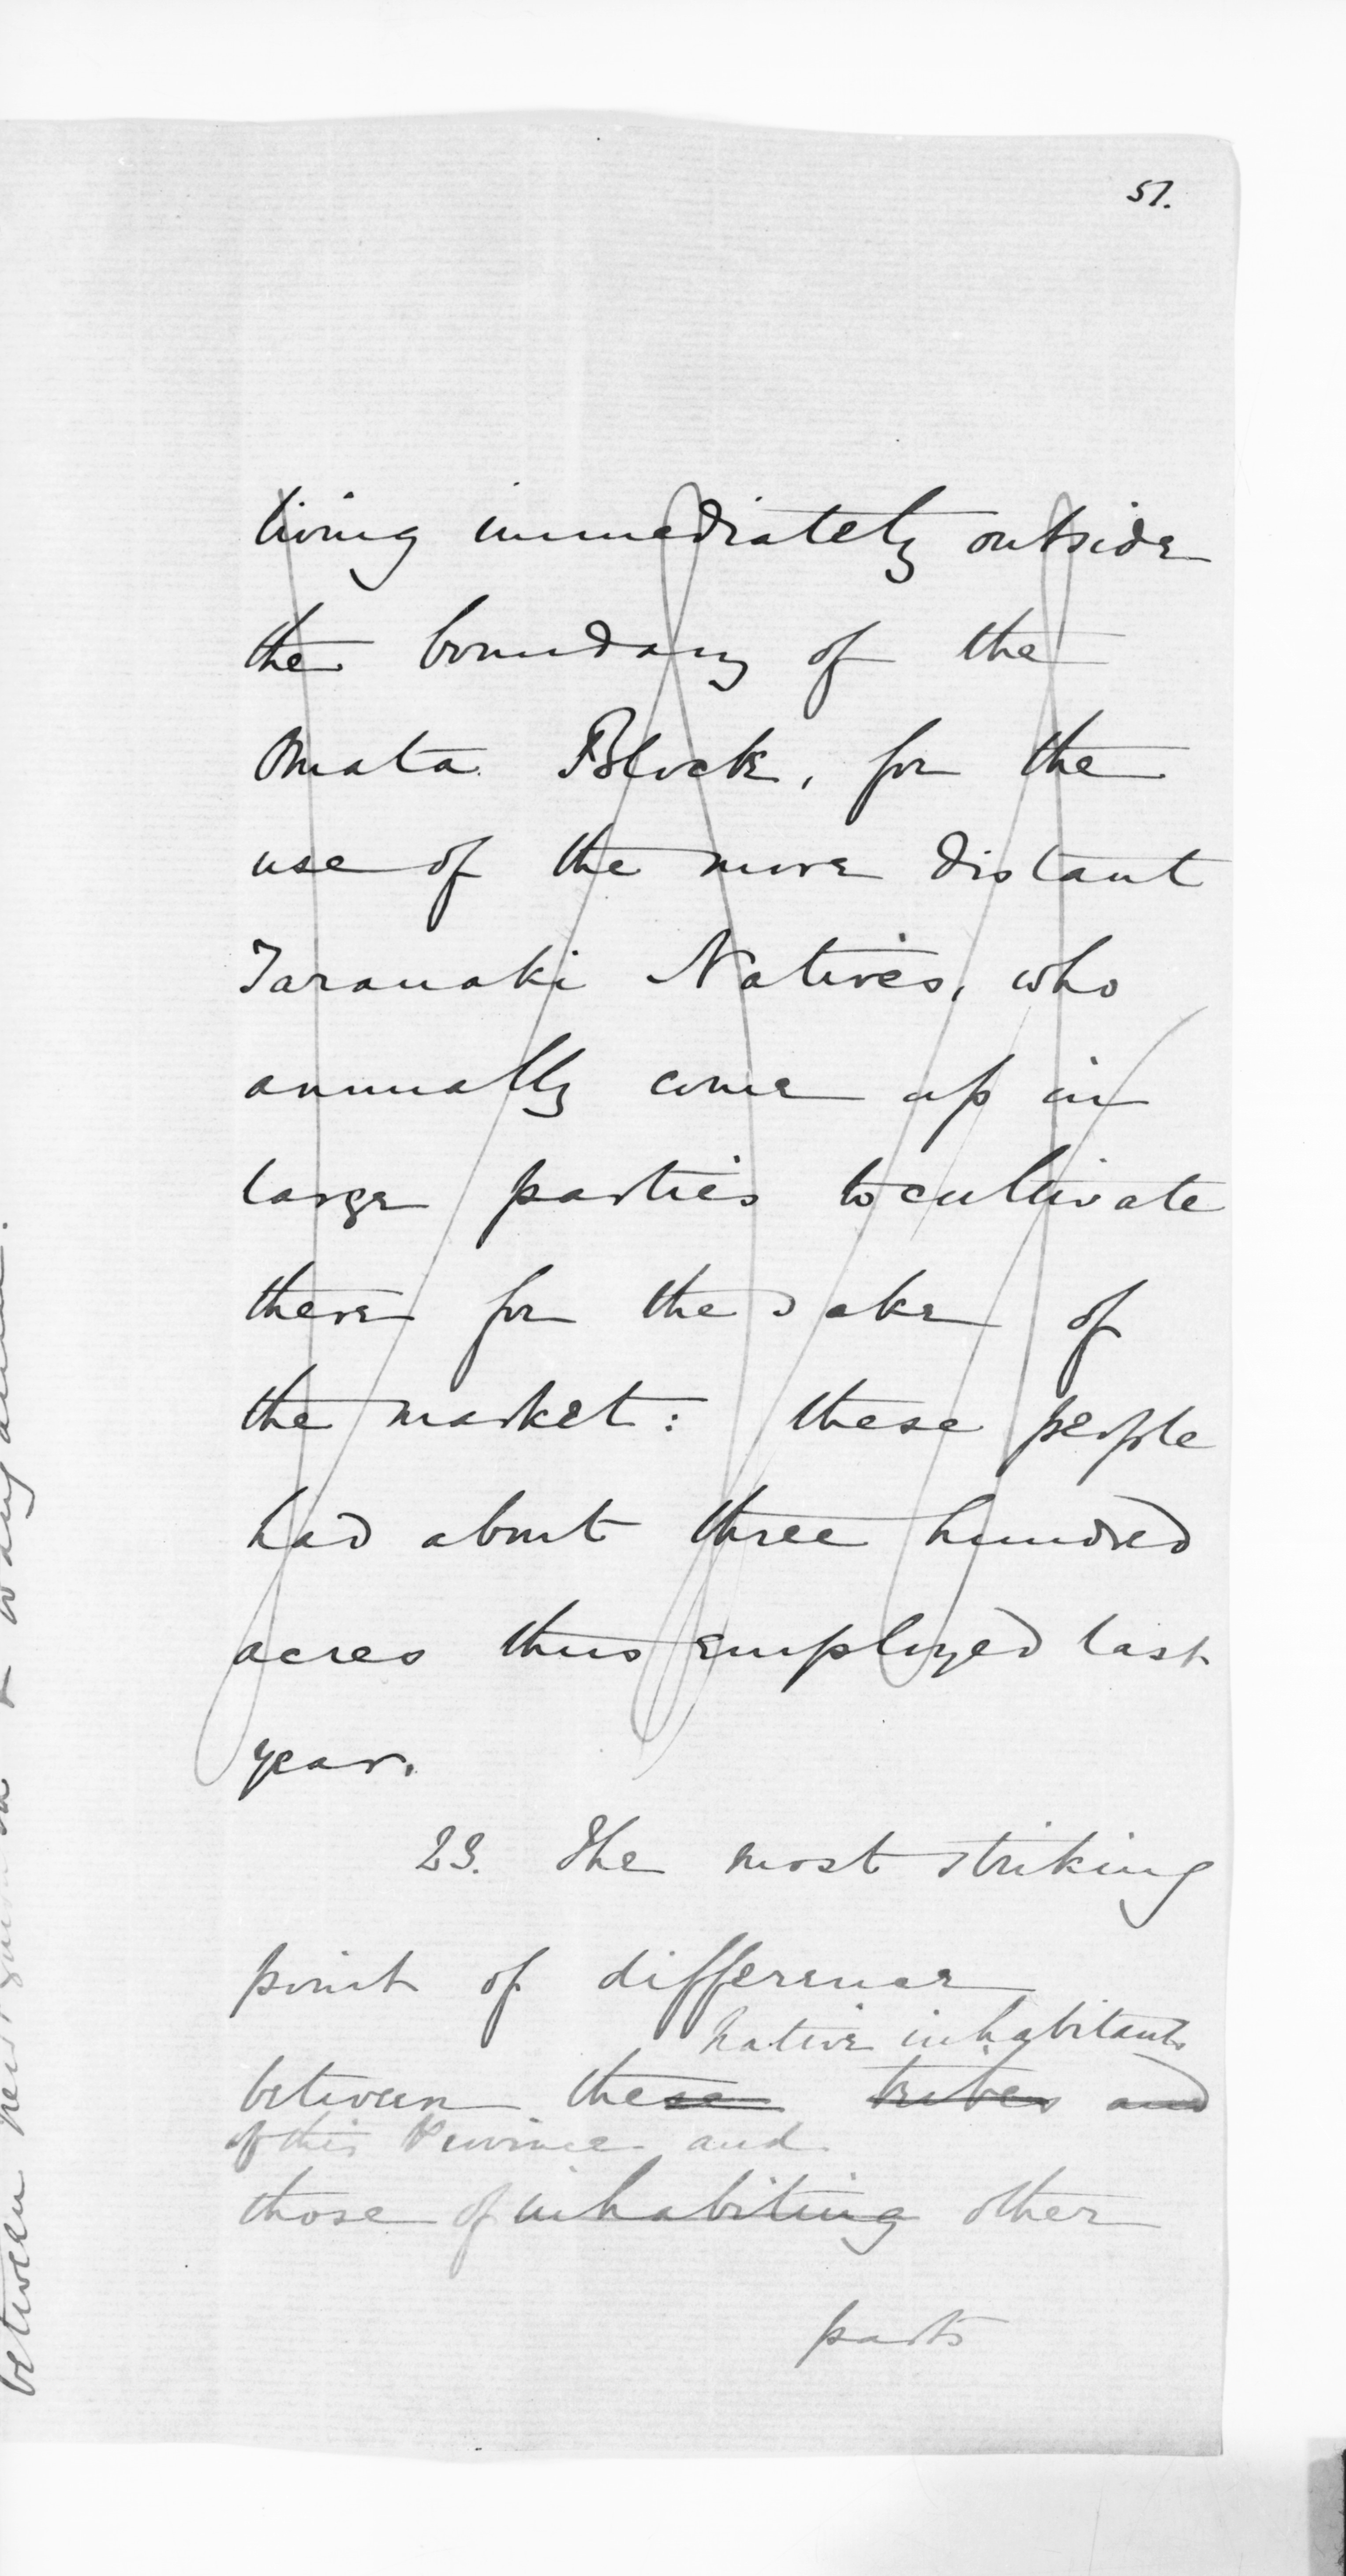 57.
living immediately outside
the boundary of the
Omata Block, for the
use of the more distant
Taranaki Natives, who
annually come up in
large parties to cultivate
there for the sake of
the market: these people
had about three hundred
acres thus employed last
year.
23. The most striking
point of difference
native inhabitants
between these tribes and
of this Province and
those of inhabiting other
parts
between